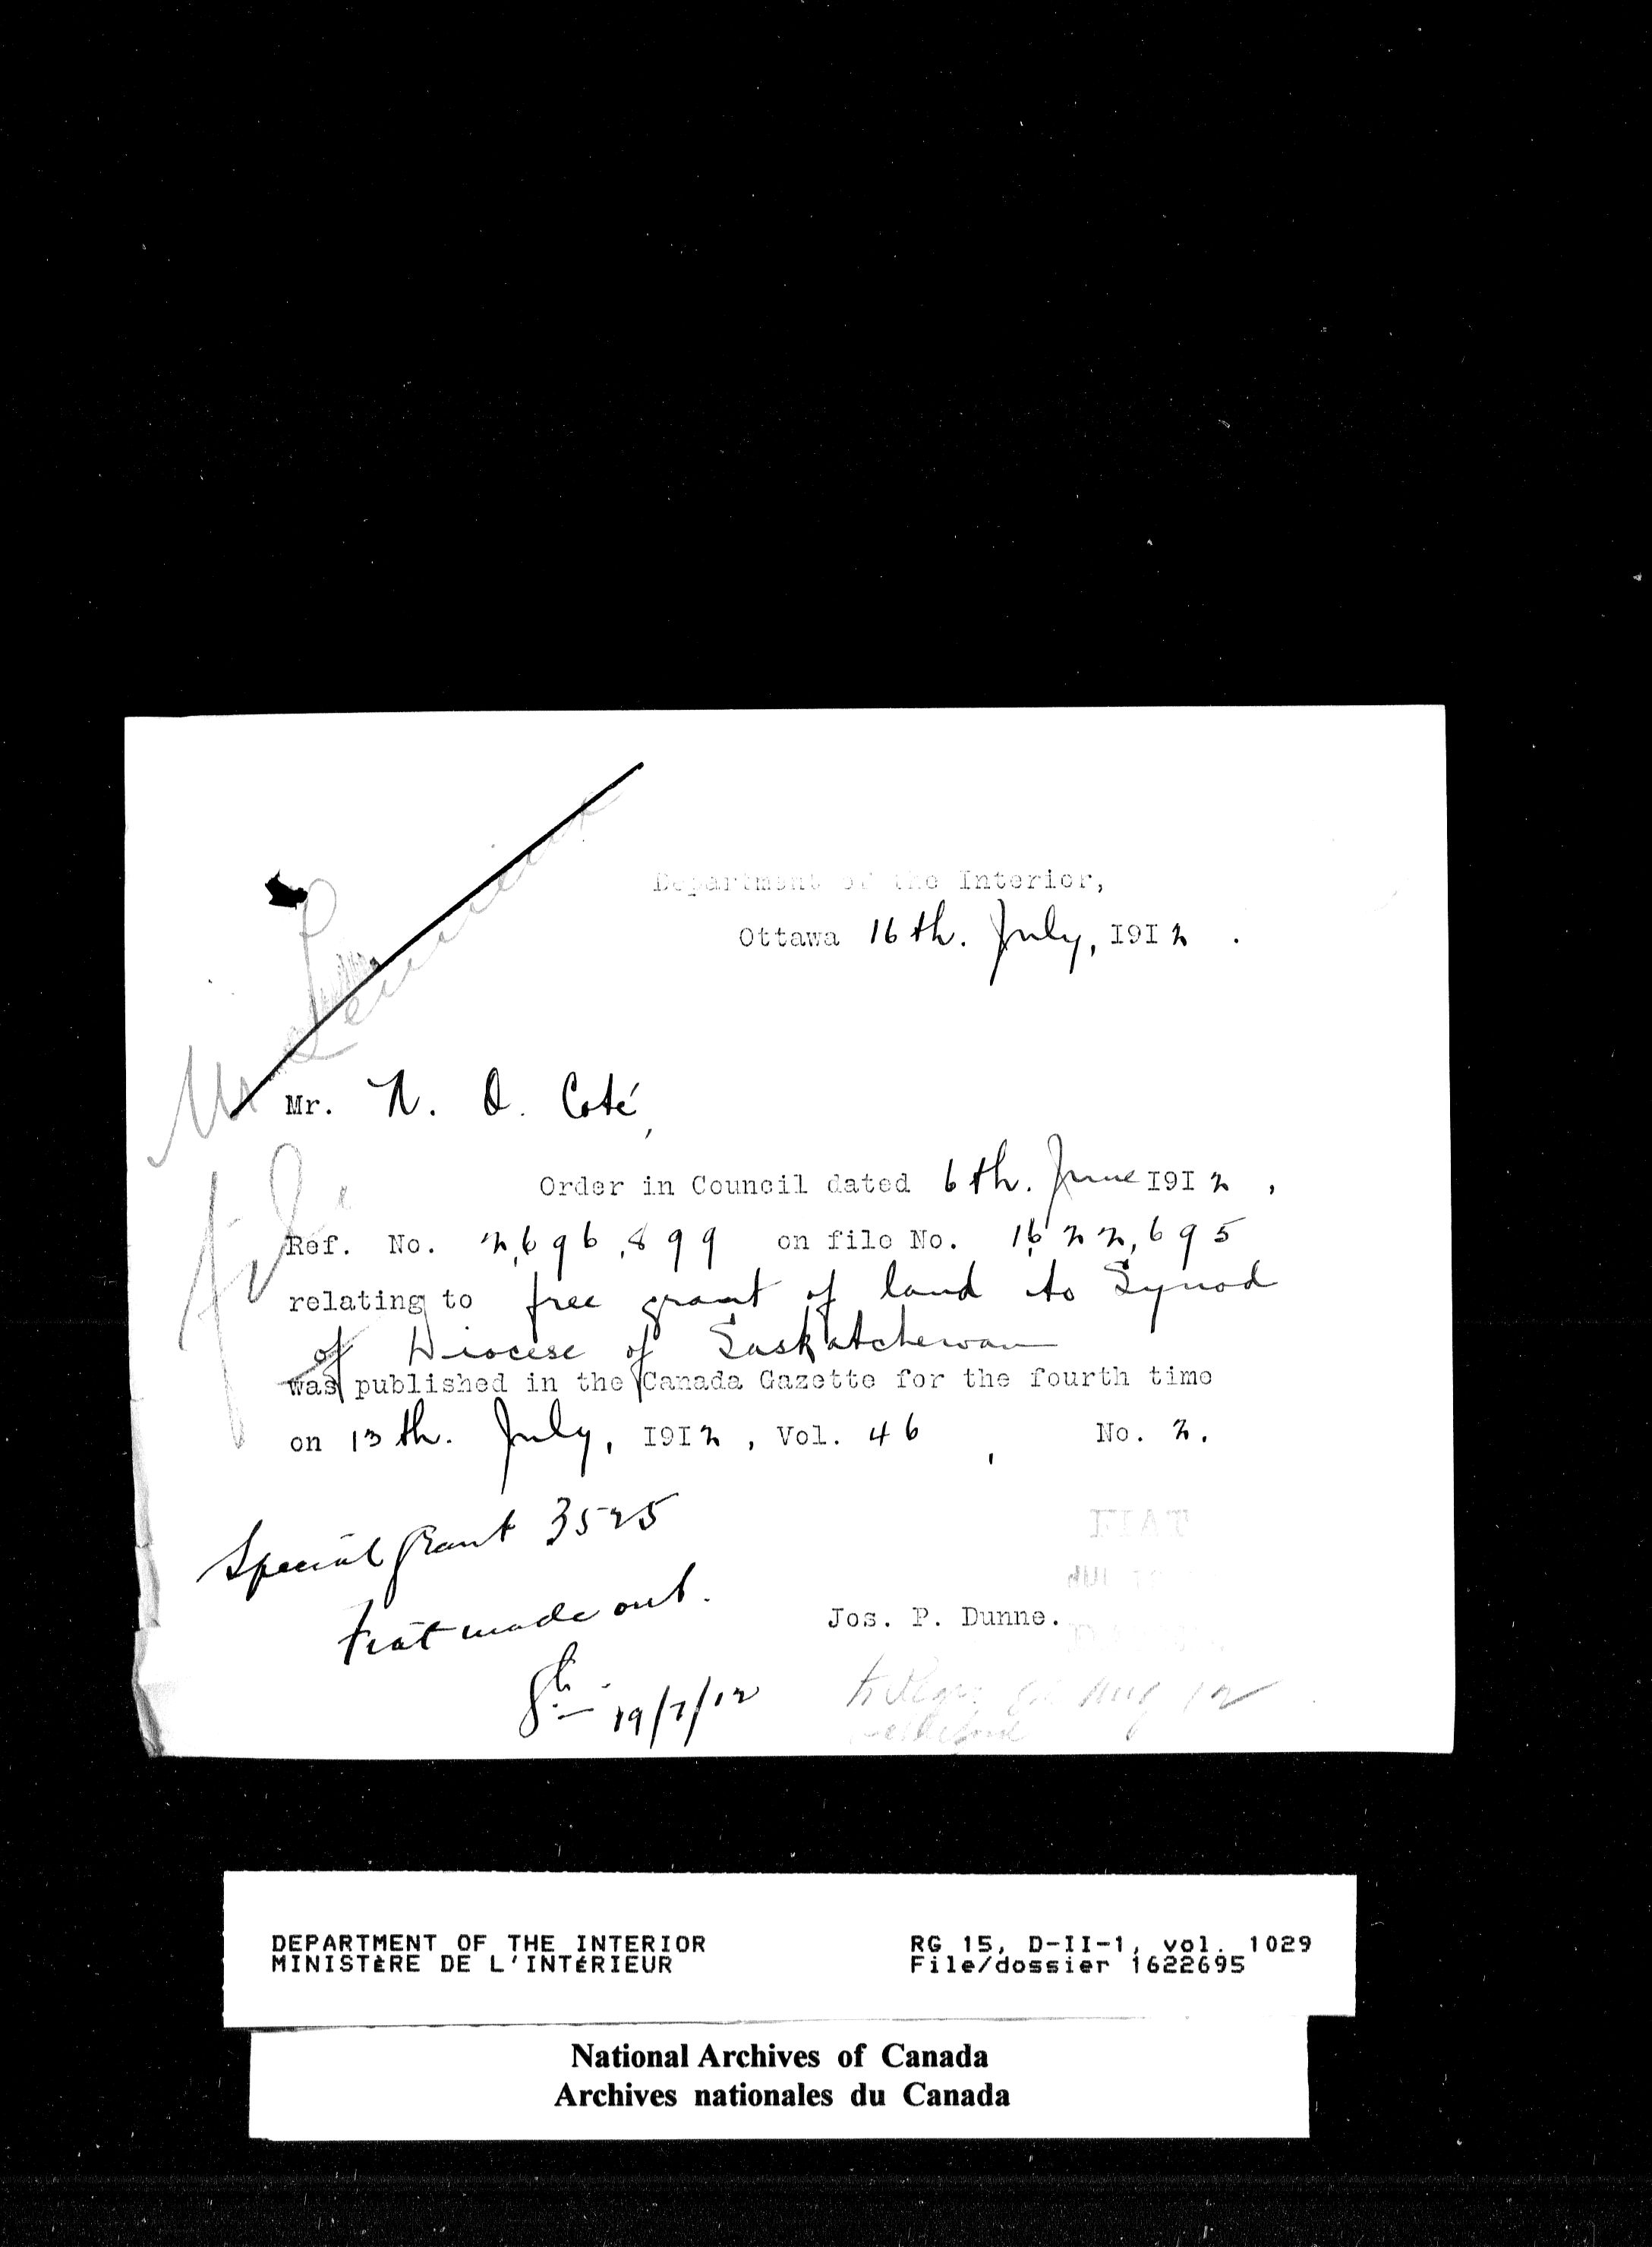 Department of the Interior,
Ottawa 16th. July, 1912.
Mr Lemieux
Mr. N. O. Coté,
file
Order in Council dated 6th. June 1912,
Ref. No. 2,696,899 on file No. 1622,695
relating to free grant of land to Synod
of Diocese of Saskatchewan
was published in the Canada Gazette for the fourth time
on 13th. July, 1912, Vol. 46, No. 2.
Special Grant 3525
FIAT
JUL
Fiat made out.
Jos. P. Dunne.
19/7/12
Aug 12
DEPARTMENT OF THE INTERIOR RG 15, D-II-1, vol. 1029
MINISTÈRE DE L'INTÉRIEUR File/dossier 1622695
National Archives of Canada
Archives nationales du Canada